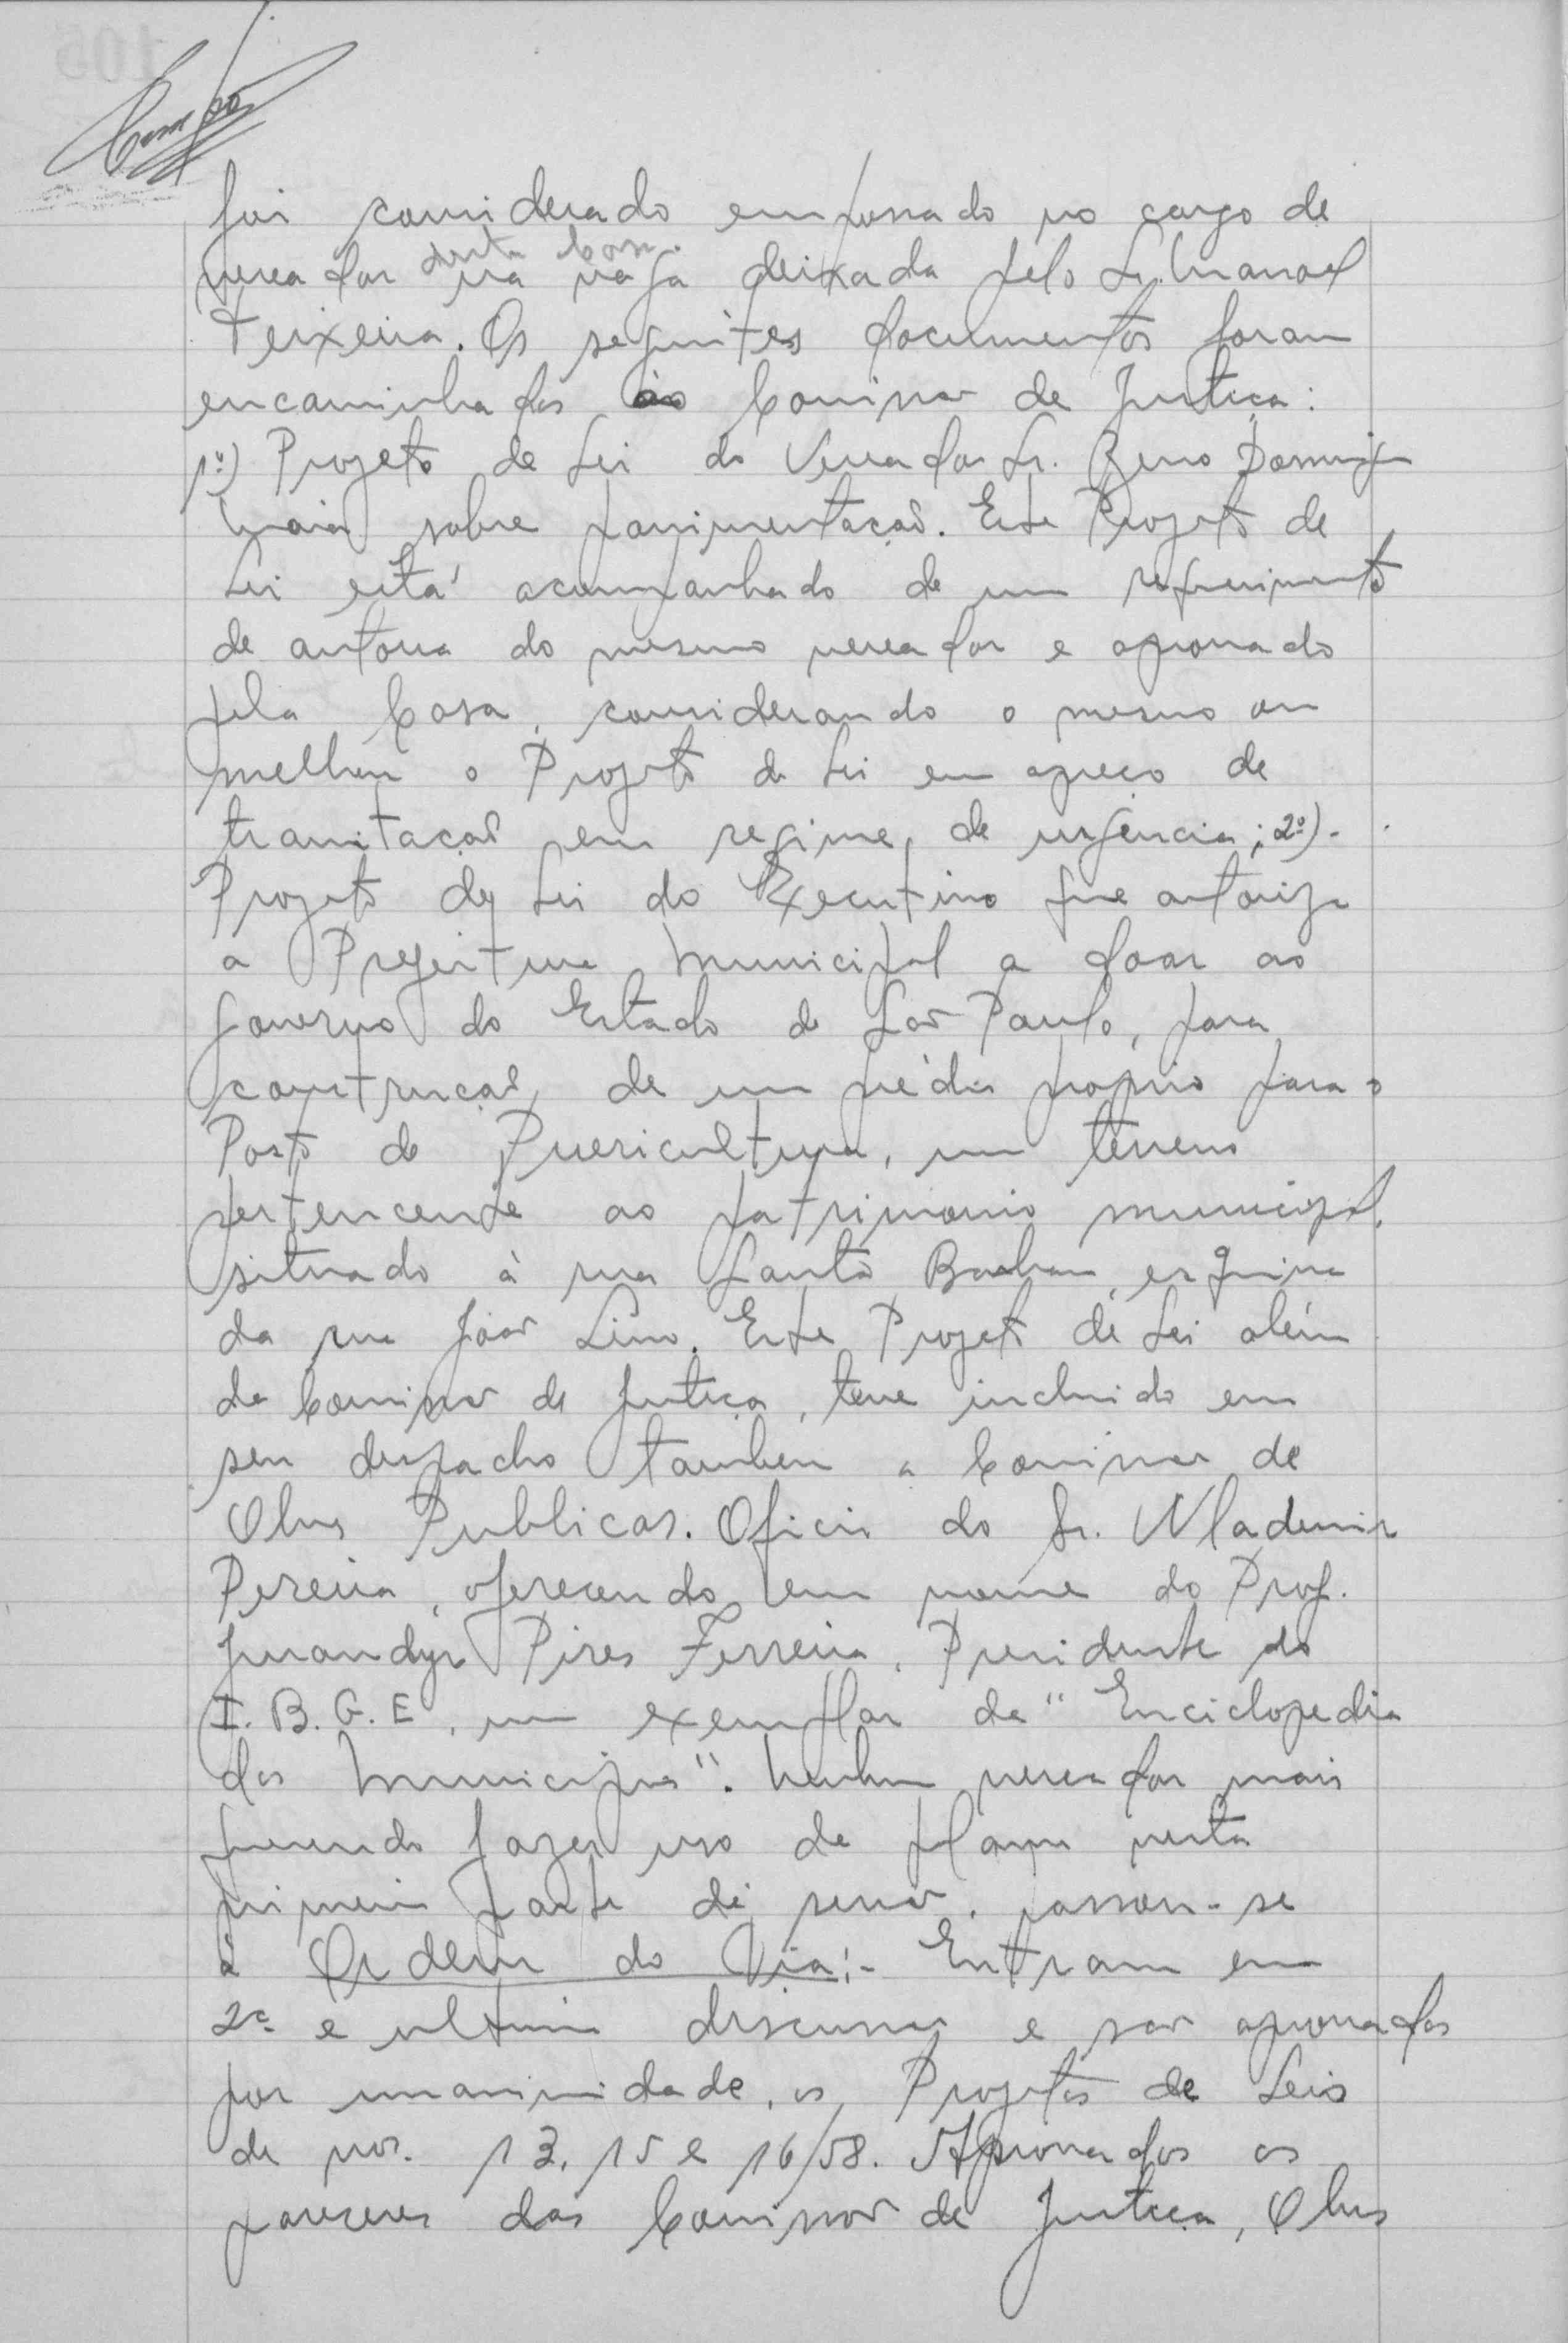 foi considerado empossado no cargo de
desta Casa.
vereador na vaga deixada pelo Sr. Manoel
Teixeira. Os seguintes documentos foram
encaminhados às Comissão de Justiça:
1º) Projeto de Lei do Vereador Sr. Zeno
Maia sobre pavimentação. Este Projeto de
Lei está acompanhado de um requerimento
de autoria do mesmo vereador e aprovado
pela Casa, considerando o mesmo
o Projeto de Lei em apreço de
tramitação em regime de urgência; 2º)-
Projeto de Lei do Executivo que autoriza
a Prefeitura Municipal a doar ao
Governo do Estado de São Paulo, para
construção de um prédio proprio para o
Posto de Puericultura, um terreno
pertencente ao patrimonio municipal,
situado à rua Santa Barbara, esquina
da rua João Lino. Este Projeto de Lei além
da Comissão de Justiça, teve incluido em
seu despacho tambem a Comissão de
Obras Publicas. Oficio do Sr. Wlademir
Pereira, oferecendo em nome do Prof.
Jurandyr Pires Ferreira, Presidente do
I.B.G.E, um exemplar da "Enciclopedia
dos Municipios". Nenhum vereador mais
querendo fazer uso da palavra nesta
primeira parte da sessão, passou-se
à Ordem do Dia:- Entram em
2ª e ultima discussão e são aprovados
por unanimidade, os Projetos de Leis
de nos. 13, 15 e 16/58. Aprovados os
pareceres das Comissão de Justiça, Obras